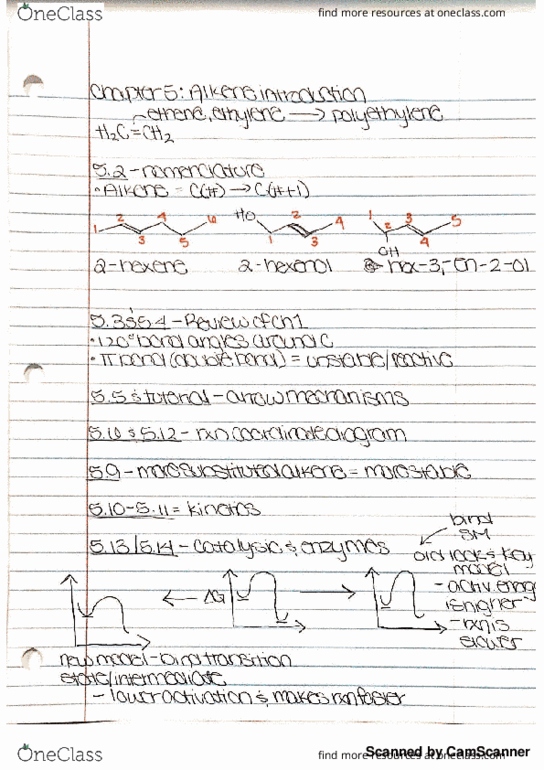 OneClass
find more resources at oneclass.com
Chapter 5: Alkene introduction
ethene, ethylene → polyethylene
H₂C=CH₂
5.2 - nomenclature
• Alkene = C(#) → C(#+1)
1 2 3 4 5 6
HO 1 2 3 4
1 2 3 4 5
OH
2-hexene 2-hexenol hex-3-en-2-ol
5.3 & 5.4 - Review of Ch 1
• 120° bond angles around C
• π bond (double bond) = unstable/reactive
5.5 & tutorial - arrow mechanisms
5.6 & 5.12 - rxn coordinate diagram
5.9 - more substituted alkene = more stable
5.10-5.11 = kinetics
5.13/5.14 - catalysis & enzymes
bind
SM
old lock & key
model
- activ energ
is higher
- rxn is
slower
← ΔG →
new model - bind transition
state/intermediate
- lower activation & makes rxn faster
OneClass
find more resources at oneclass.com
Scanned by CamScanner